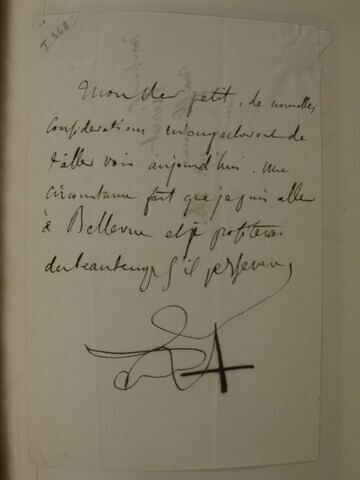 I. 368
Mon cher petit, de nouvelles
considérations m'empecheront de
t'aller voir aujourd'hui. une
circonstance fait que je puis aller
à Bellevue et je profiterai
du beau temps s'il persevere